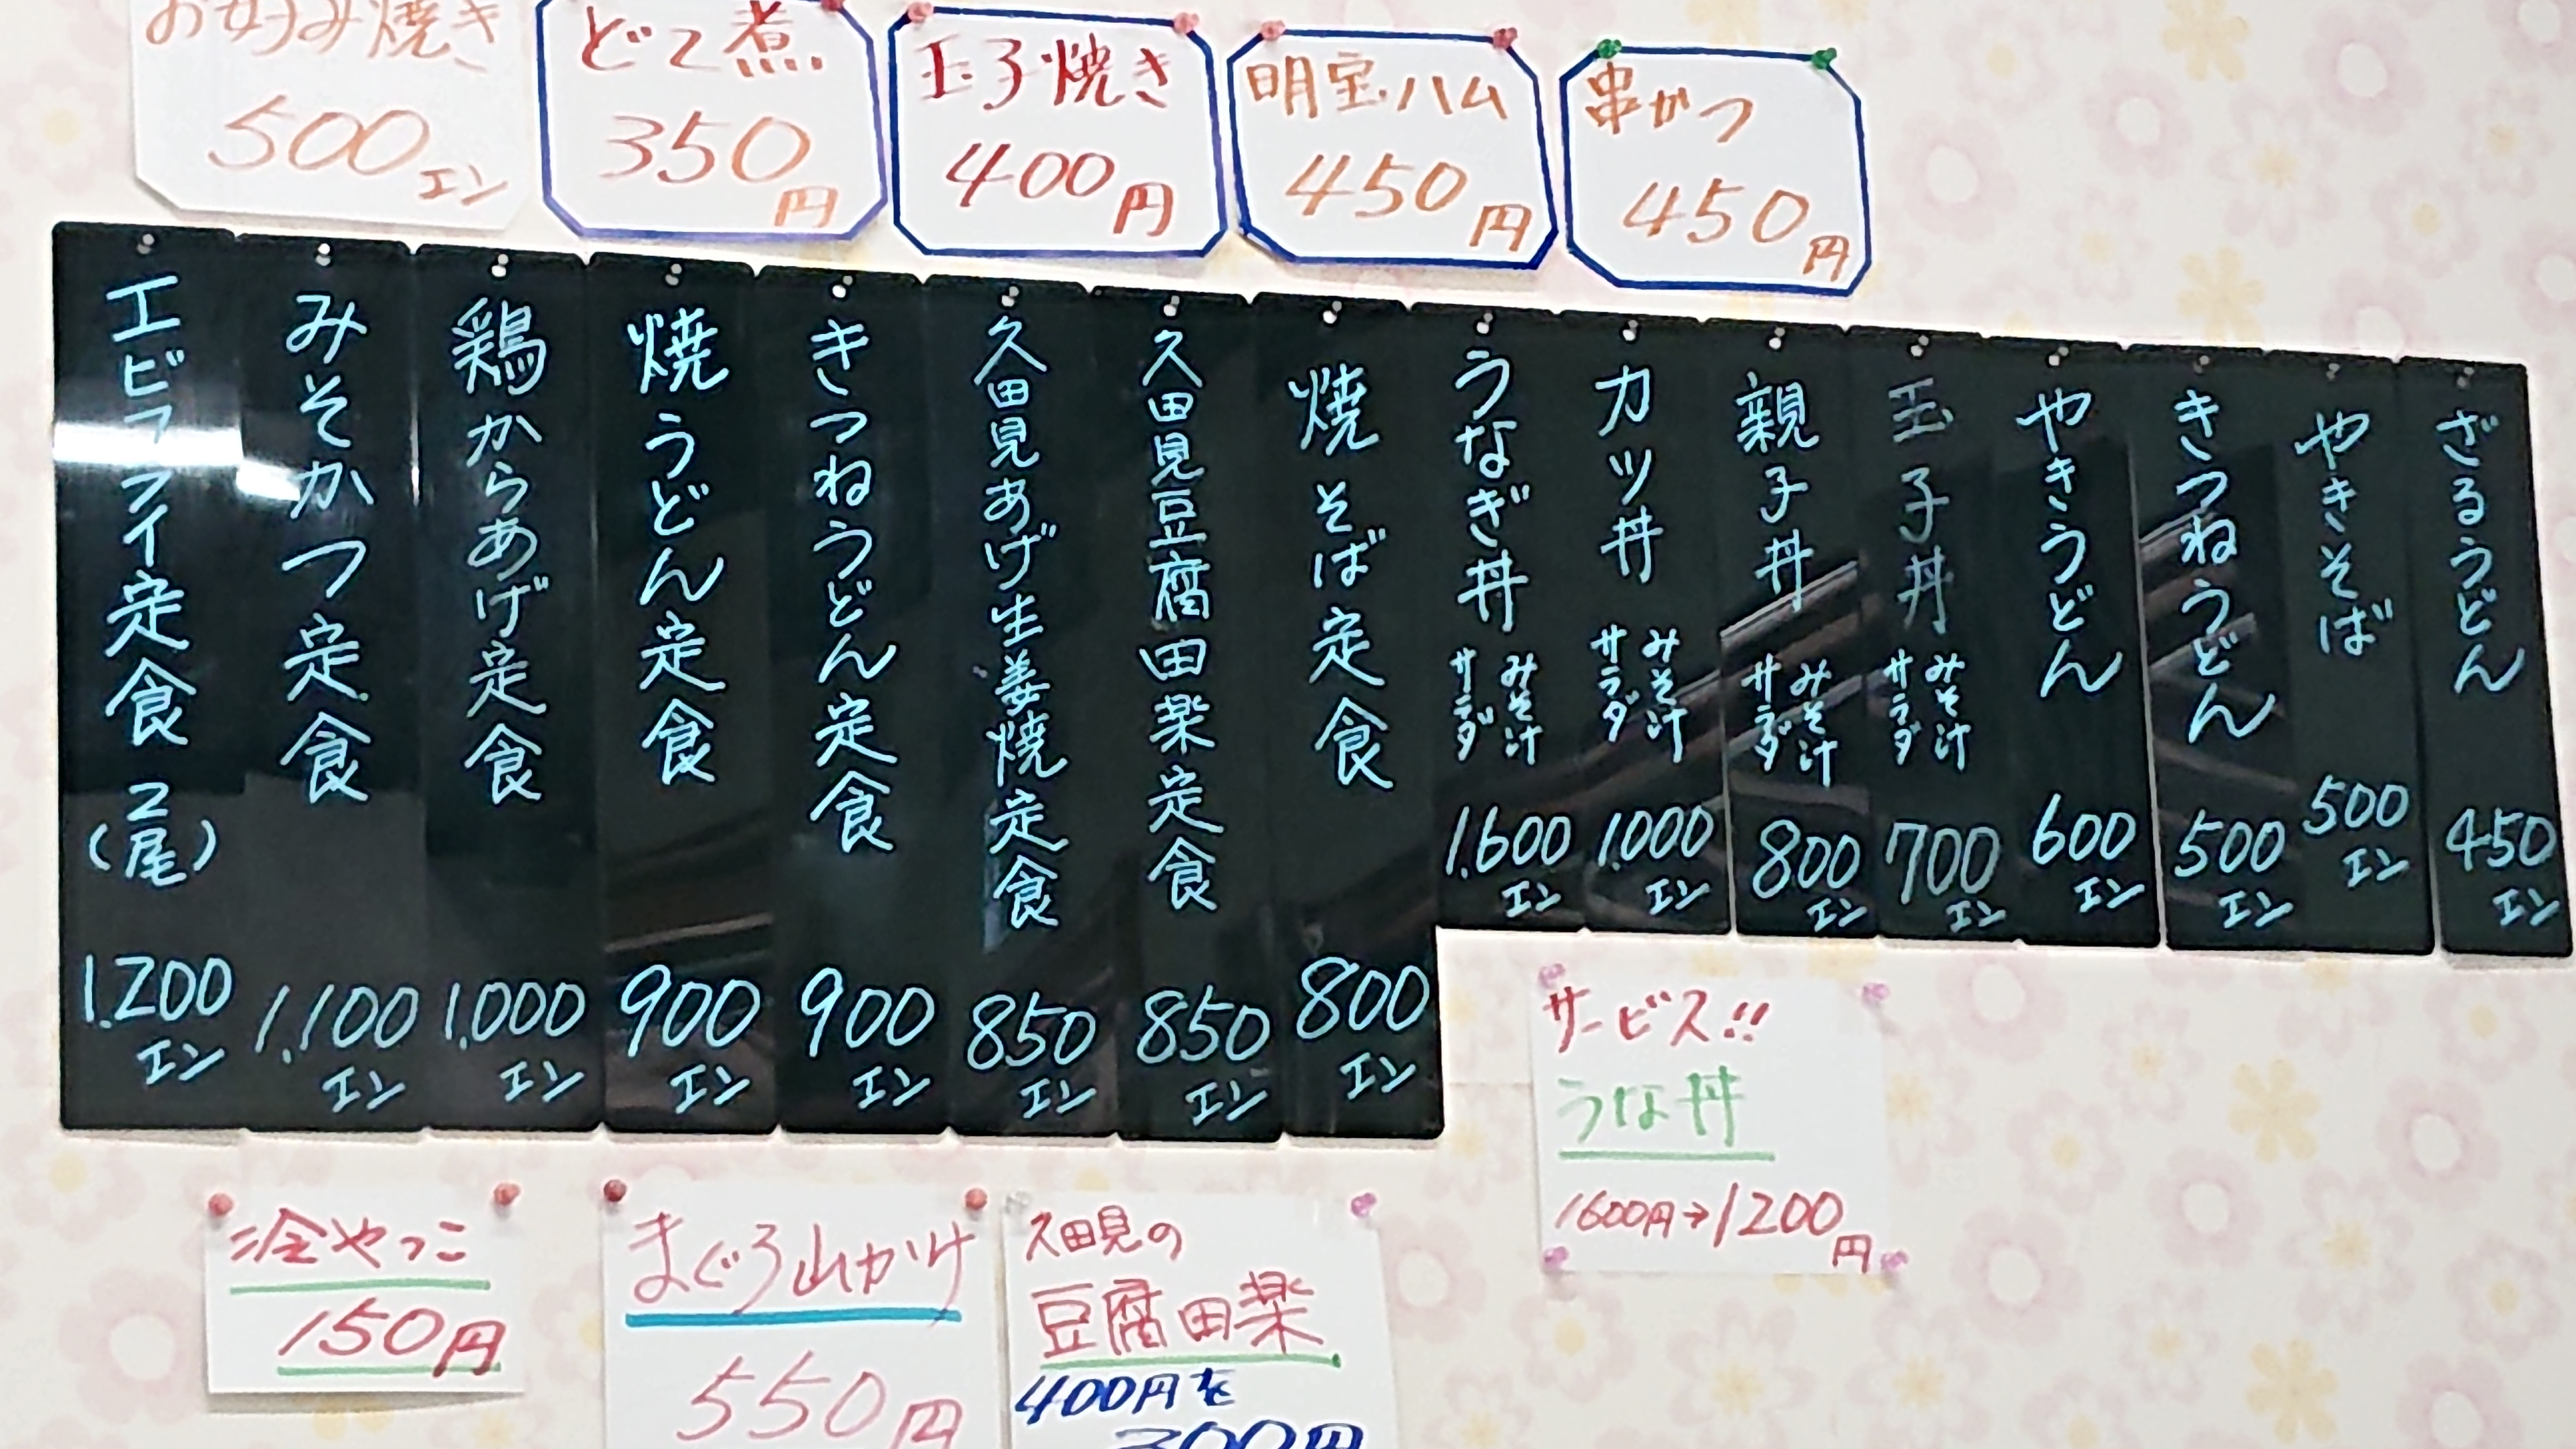 お好み焼き
500エン
どて煮
350円
玉子焼き
400円
明宝ハム
450円
串かつ
450円
エビフライ定食(2尾)
1.200エン
みそかつ定食
1.100エン
鶏からあげ定食
1.000エン
焼うどん定食
900エン
きつねうどん定食
900エン
久田見あげ生姜焼定食
850エン
久田見豆腐田楽定食
850エン
焼そば定食
800エン
うなぎ丼
みそ汁
サラダ
1.600エン
カツ丼
みそ汁
サラダ
1.000エン
親子丼
みそ汁
サラダ
800エン
玉子丼
みそ汁
サラダ
700エン
やきうどん
600エン
きつねうどん
500エン
やきそば
500エン
ざるうどん
450エン
サービス!!
うな丼
1600円→1200円
冷やっこ
150円
まぐろ山かけ
550円
久田見の
豆腐田楽
400円を
300円